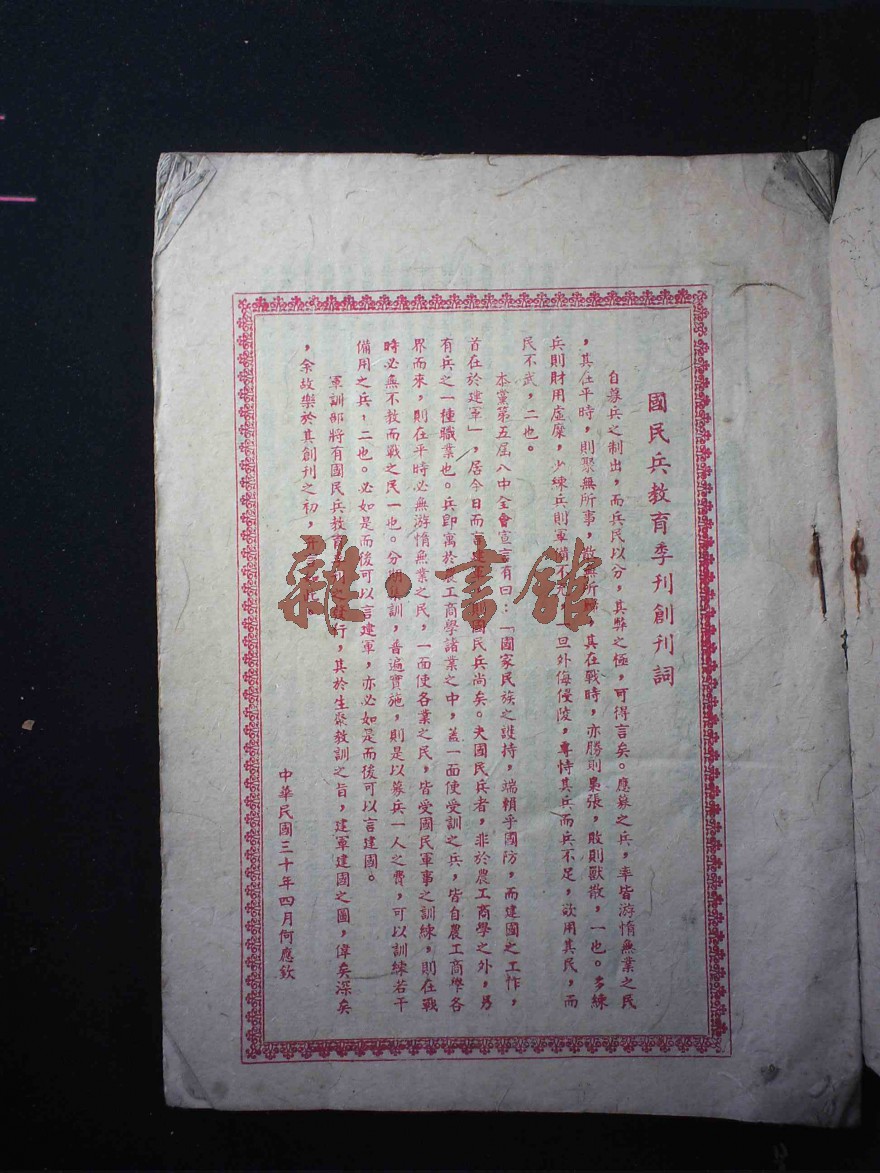 國民兵教育季刊創刊詞
自募兵之制出，而兵民以分，其弊之極，可得言矣。應募之兵，率皆游惰無業之民
，其在平時，則聚無所事，散無所歸，其在戰時，亦勝則囂張，敗則獸散，一也。多練
兵則財用虛糜，少練兵則軍備不充，一旦外侮侵陵，專恃其兵而兵不足，欲用其民，而
民不武，二也。
本黨第五屆八中全會宣言有曰：「國家民族之維持，端賴乎國防，而建國之工作，
首在於建軍」，居今日而言建軍，則國民兵尚矣。夫國民兵者，非於農工商學之外，另
有兵之一種職業也。兵即寓於農工商學諸業之中，蓋一面使受訓之兵，皆自農工商學各
界而來，則在平時必無游惰無業之民，一面使各業之民，皆受國民軍事之訓練，則在戰
時必無不教而戰之民一也。分期集訓，普遍實施，則是以募兵一人之費，可以訓練若干
備用之兵，二也。必如是而後可以言建軍，亦必如是而後可以言建國。
軍訓部將有國民兵教育季刊之發行，其於生聚教訓之旨，建軍建國之圖，偉矣深矣
，余故樂於其創刊之初，
中華民國三十年四月何應欽
雜·書館